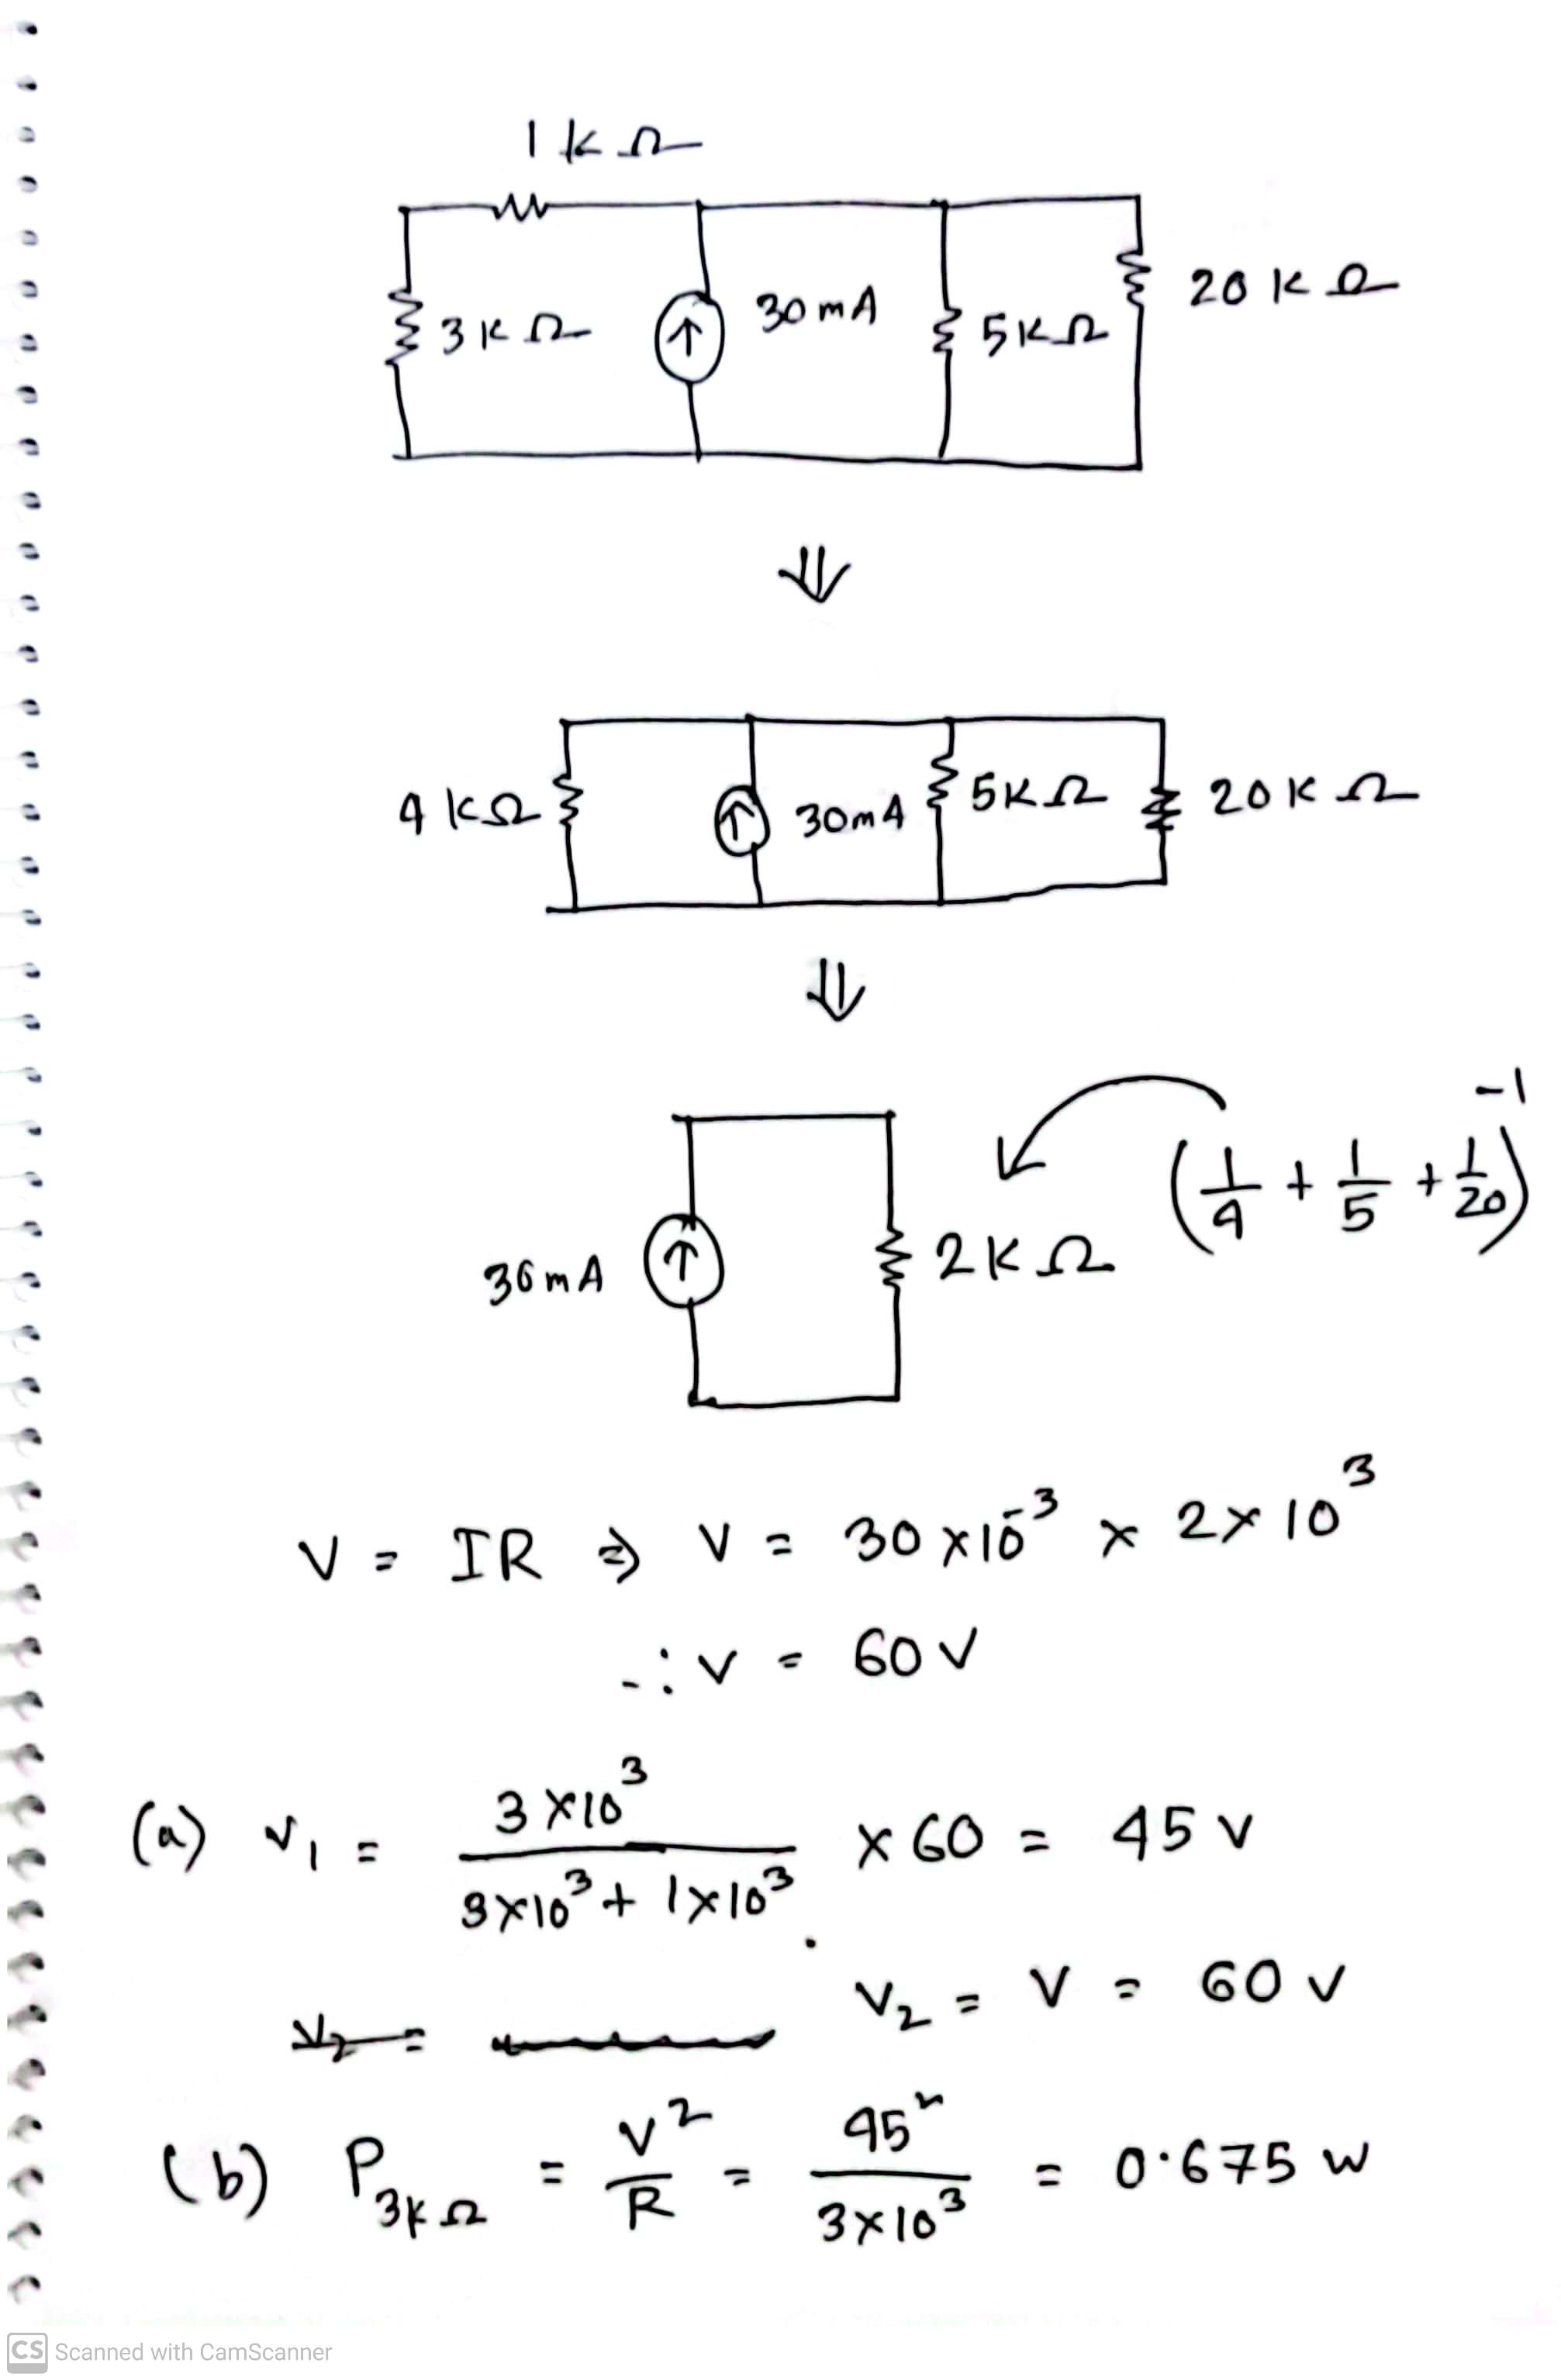 1 kΩ
3 KΩ
30 mA
5KΩ
20 KΩ
⇓
4 KΩ
30mA
5KΩ
20 K Ω
⇓
30 mA
2 K Ω
(1/4 + 1/5 + 1/20)^-1
V = IR ⇒ V = 30 × 10^-3 × 2 × 10^3
∴ V = 60 V
(a) V1 = (3 × 10^3) / (3×10^3 + 1×10^3) × 60 = 45 V
V2 = V = 60 V
V2 =
(b) P3KΩ = V^2/R = 45^2 / (3×10^3) = 0.675 W
CS Scanned with CamScanner